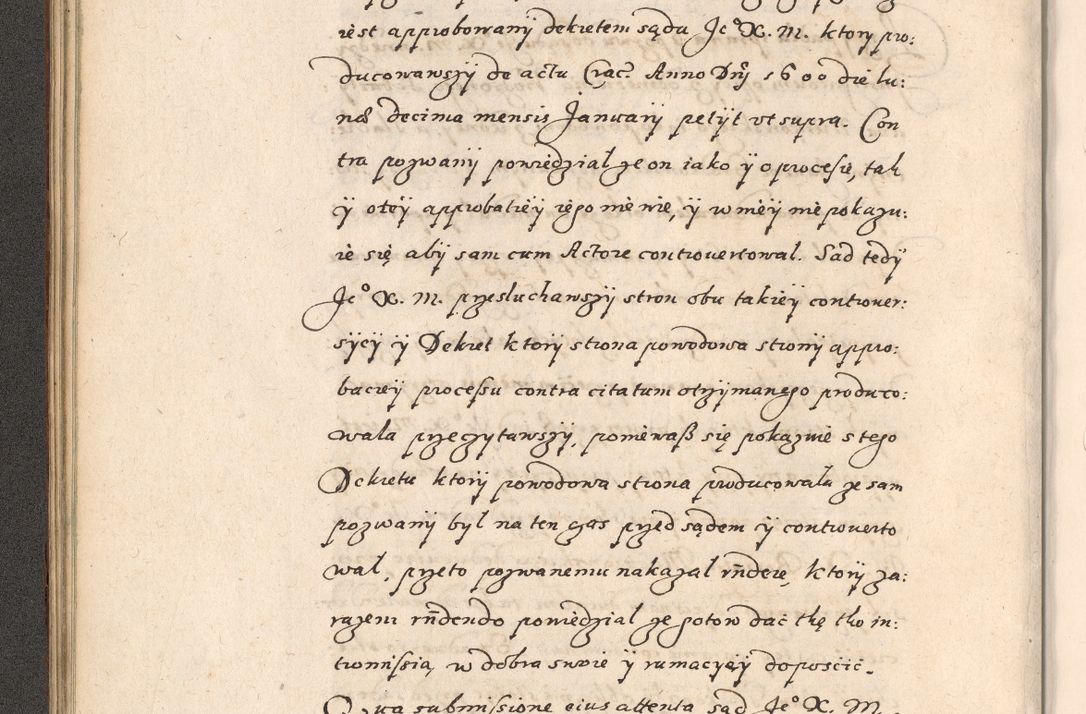 iest approbowany dekretem sądu Je° X. M. ktory pro:
ducowawszy de actu Crac. Anno Dnj 1600 die lu:
nae decima mensis Januarij petijt ut supra. Con
tra pozwany powiedzial ze on iako ÿ o procesie, tak
ÿ oteÿ approbatieÿ iego nie wie, ÿ w nieÿ nie pokazu:
ie się abÿ sam cum Actore controuertowal. Sad tedÿ
Je° X. M. przesluchawszÿ stron obu takieÿ controuer:
sÿeÿ ÿ Dekret ktorÿ strona powodowa stronÿ appro:
bacieÿ processu contra citatum otrzÿmanego produco:
wala przeczÿtawszÿ, poniewaß się pokazuie s tego
Dekretu ktorÿ powodowa strona producowala ze sam
pozwanÿ bÿl na ten czas przed sądem ÿ controuerto
wal, przeto pozwanemu nakazal rñdere, ktorÿ za:
razem rñdendo powiedzial ze gotow dać tkę tko in:
tromissią, w dobra swoie ÿ rumacÿeÿ doposcić.
Qua submissione eius attenta sąd Je° X. M.